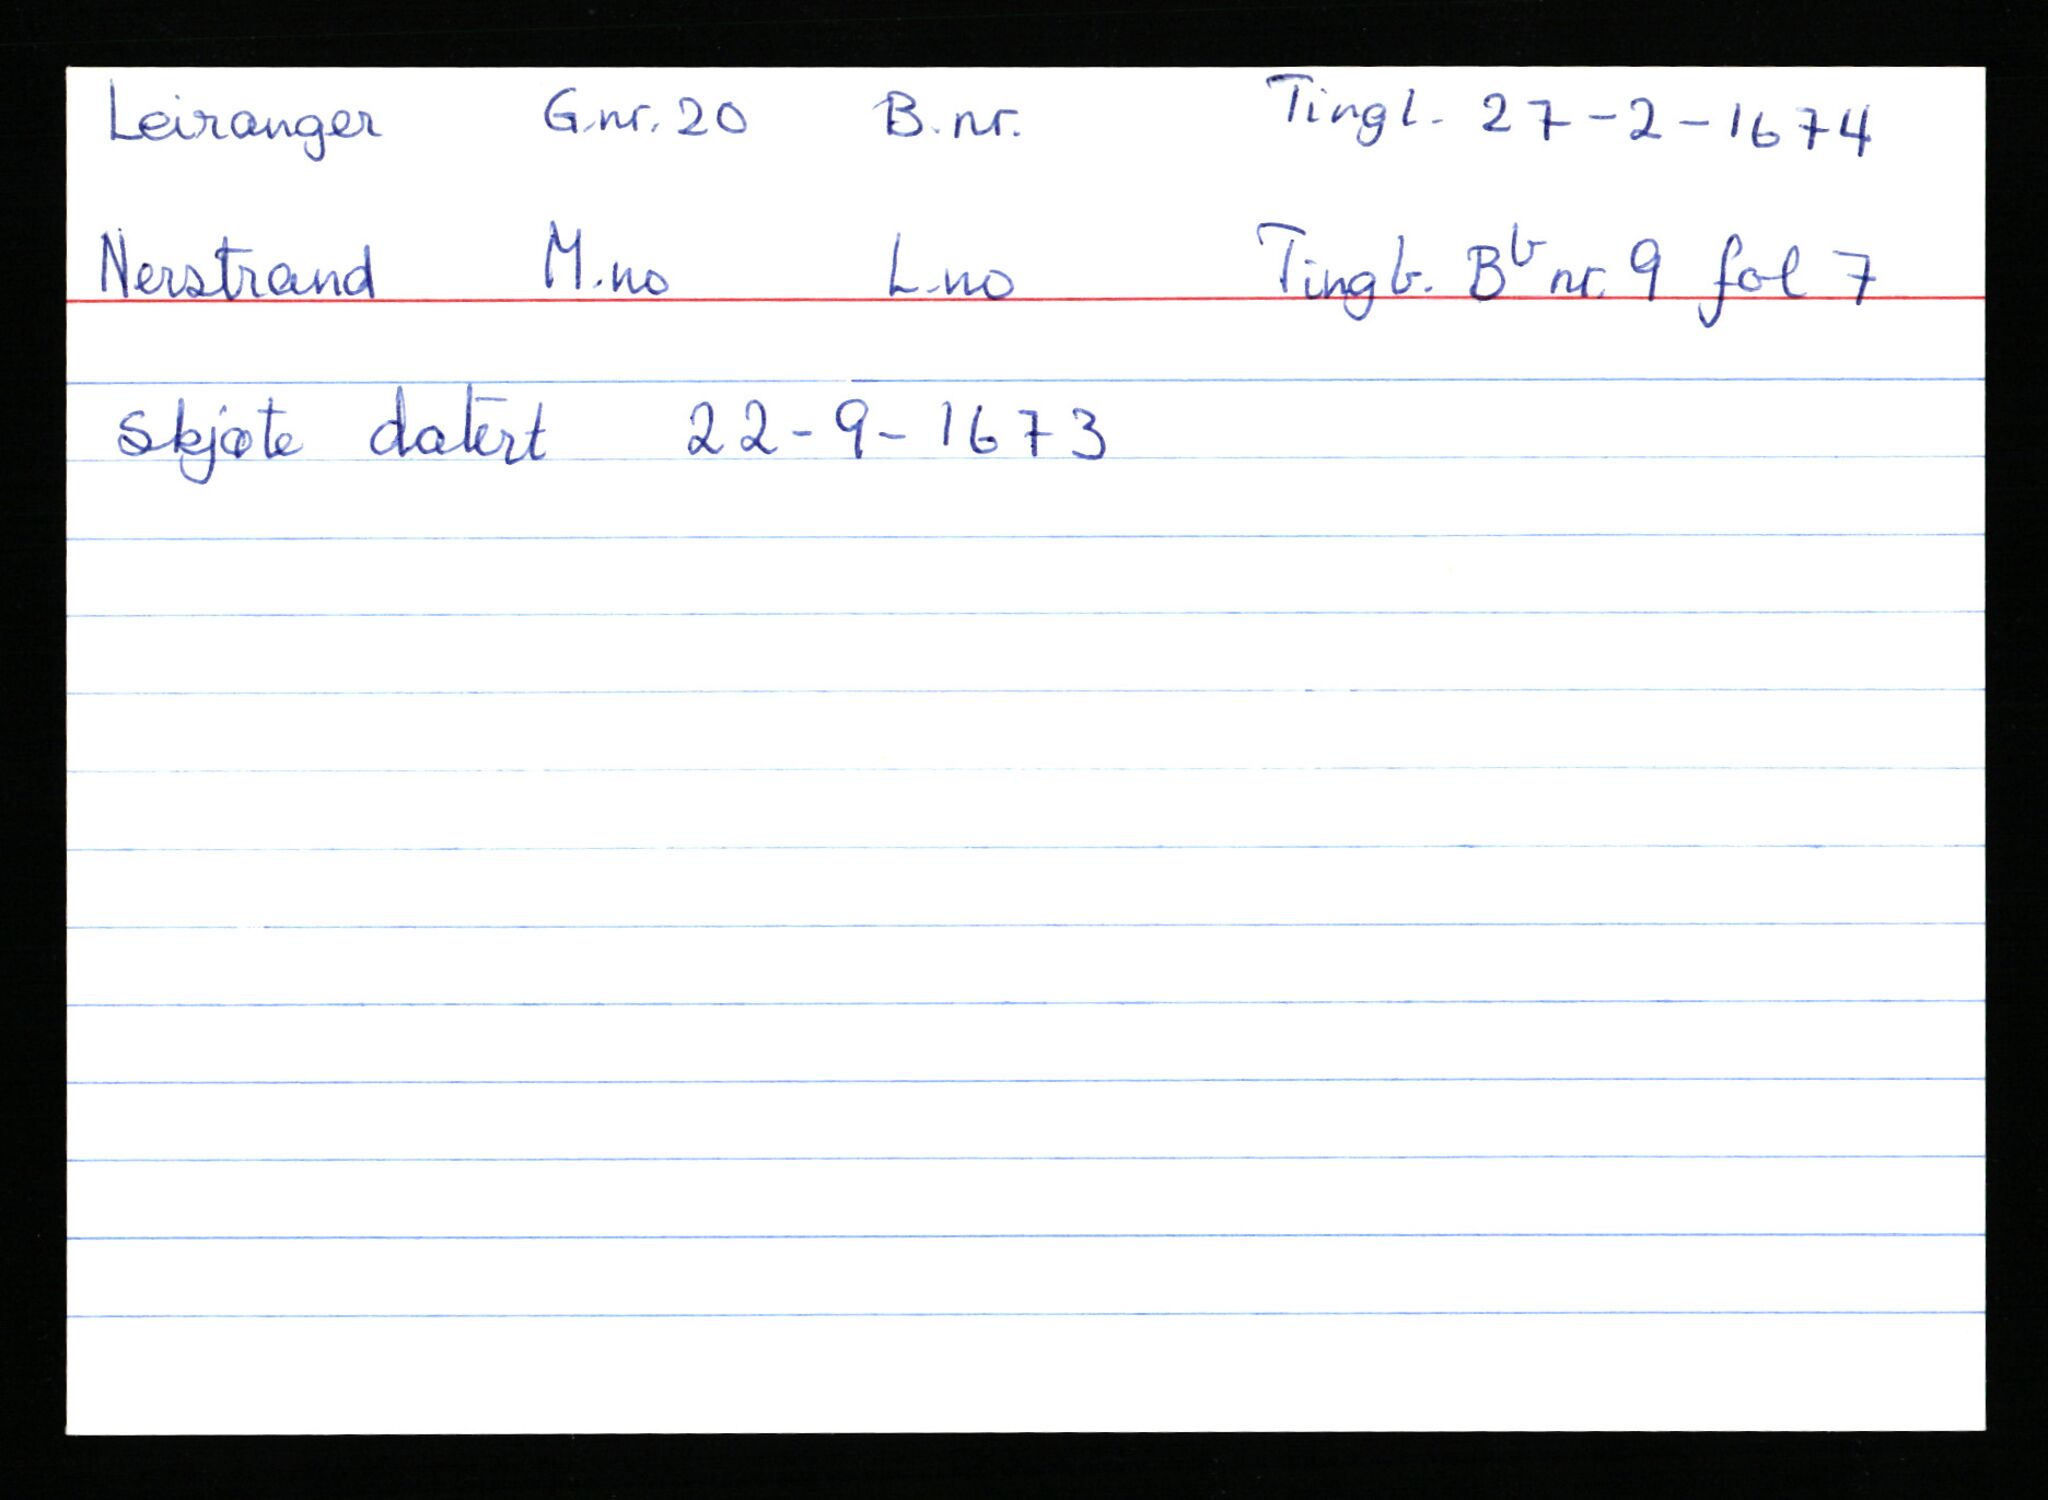 Leiranger G.nr. 20 B.nr. Tingl. 27-2-1674
Nerstrand M.no L.no Tingb. Bb nr. 9 fol 7
skjøte datert 22-9-1673